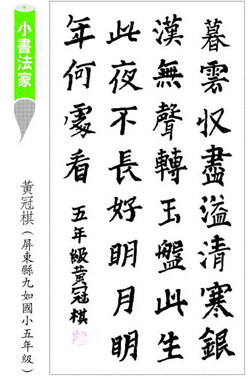 暮雲收盡溢清寒銀
漢無聲轉玉盤此生
此夜不長好明月明
年何處看
五年級黃冠棋
小書法家
黃冠棋（屏東縣九如國小五年級）